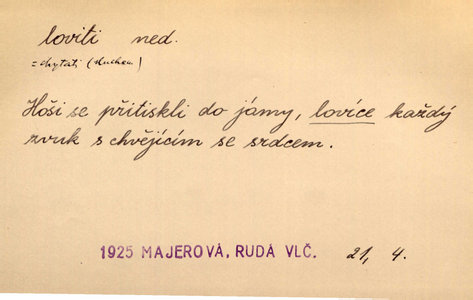 loviti ned.
= chytati (sluchem)
Hoši se přitiskli do jámy, lovíce každý
zvuk s chvějícím se srdcem.
1925 MAJEROVÁ, RUDÁ VLČ. 21, 4.